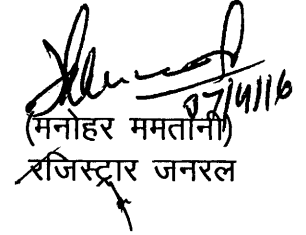 07/4/16
(मनोहर ममतानी)
रजिस्ट्रार जनरल